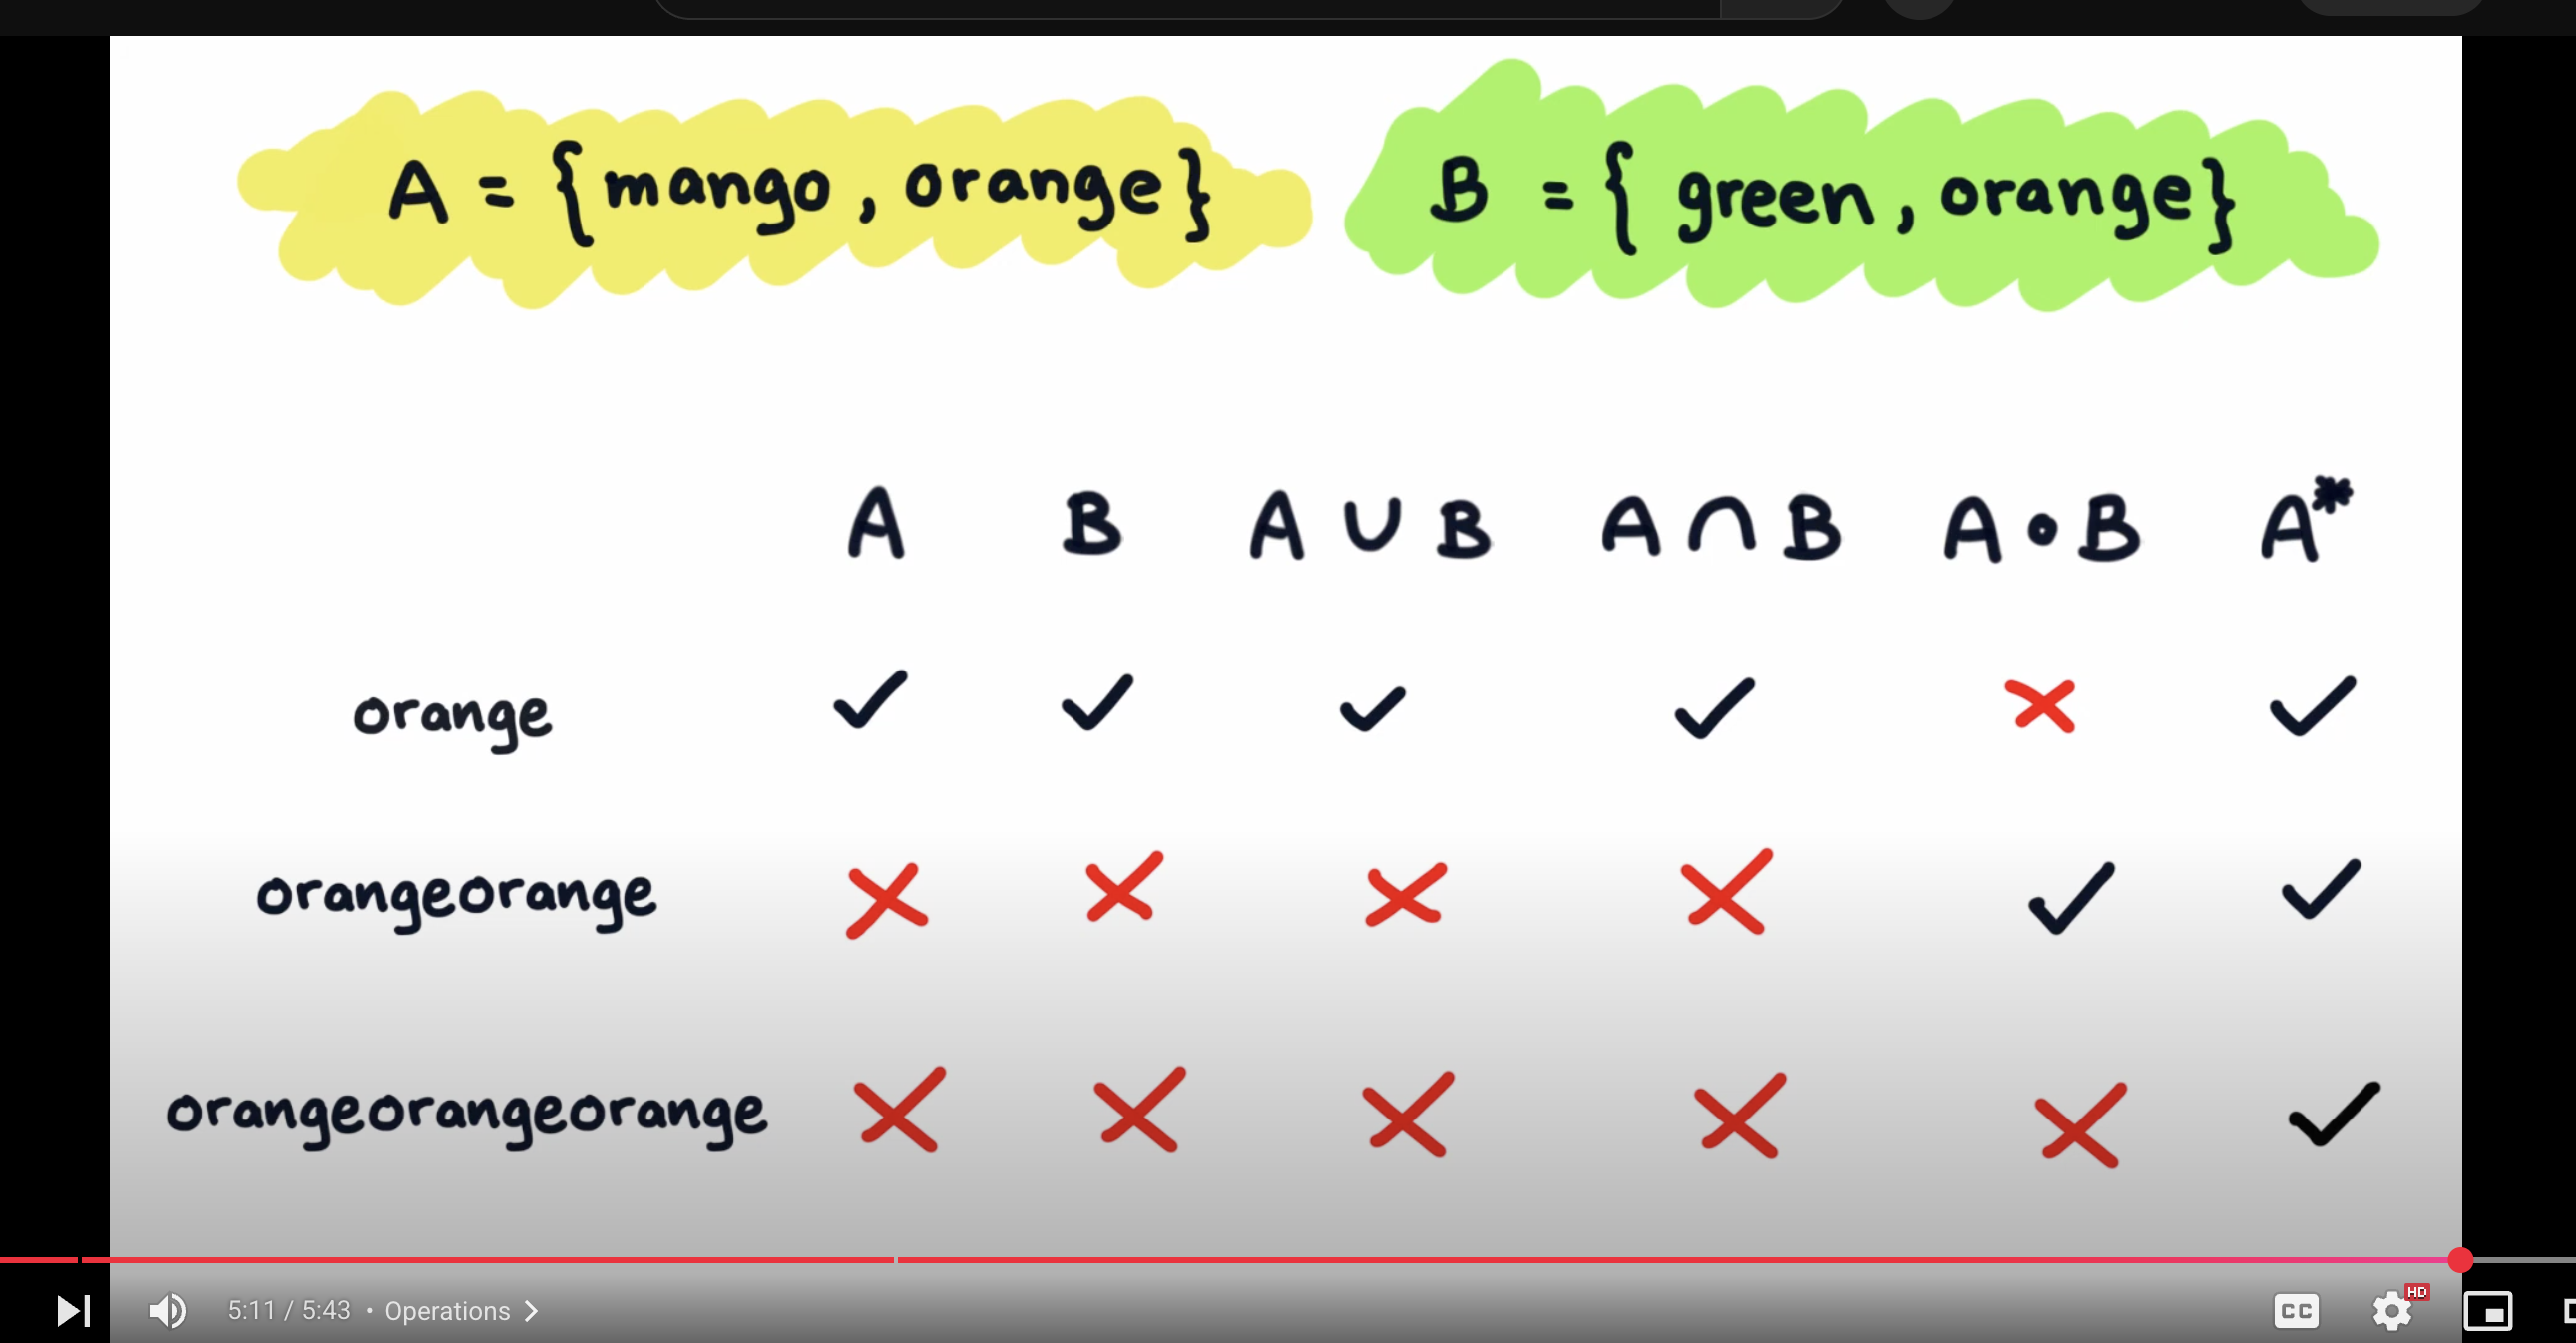 A = {mango, orange} B = {green, orange}
A B A ∪ B A ∩ B A ∘ B A*
orange ✓ ✓ ✓ ✓ ✗ ✓
orangeorange ✗ ✗ ✗ ✗ ✓ ✓
orangeorangeorange ✗ ✗ ✗ ✗ ✗ ✓
5:11 / 5:43 • Operations > CC HD